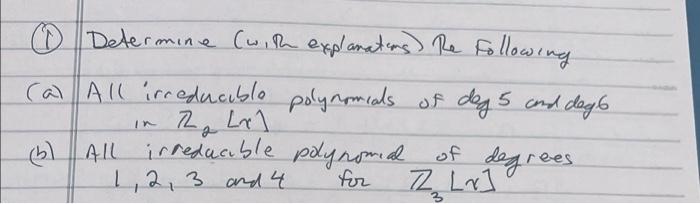 ① Determine (with explanations) The Following
(a) All irreducible polynomials of deg 5 and deg 6
in ℤ₂ [x]
(b) All irreducible polynomial of degrees
1, 2, 3 and 4 for ℤ₃ [x]